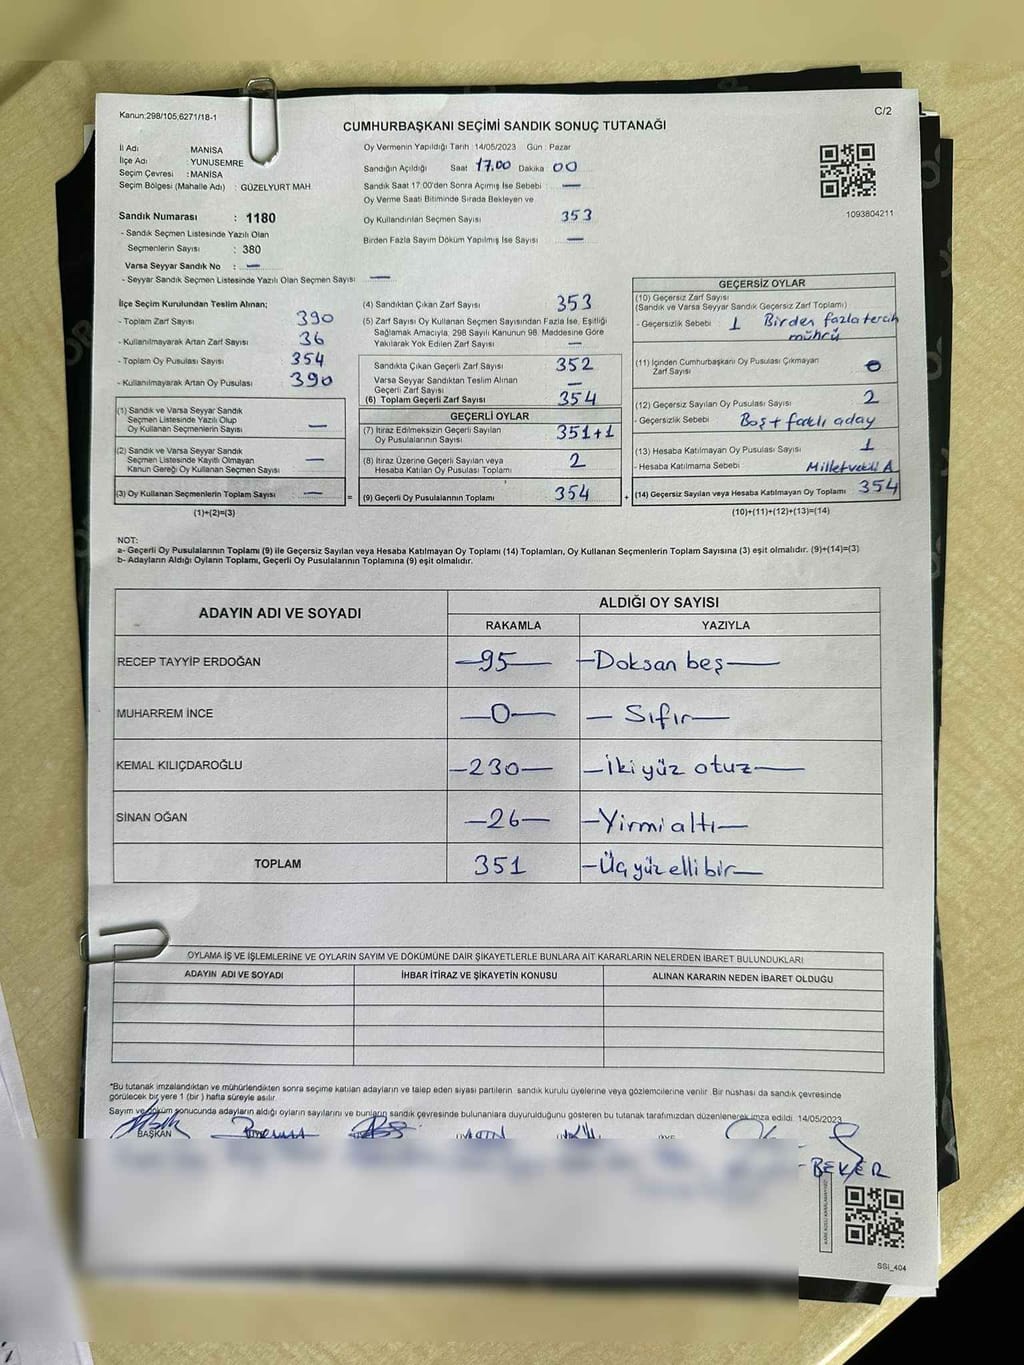 Kanun:298/105,6271/18-1
C/2
CUMHURBAŞKANI SEÇİMİ SANDIK SONUÇ TUTANAĞI
İl Adı : MANİSA
İlçe Adı : YUNUSEMRE
Seçim Çevresi : MANİSA
Seçim Bölgesi (Mahalle Adı) : GÜZELYURT MAH.
Sandık Numarası : 1180
- Sandık Seçmen Listesinde Yazılı Olan
Seçmenlerin Sayısı : 380
Varsa Seyyar Sandık No : —
- Seyyar Sandık Seçmen Listesinde Yazılı Olan Seçmen Sayısı —
Oy Vermenin Yapıldığı Tarih :14/05/2023 Gün : Pazar
Sandığın Açıldığı Saat 17.00 Dakika 00
Sandık Saat 17:00'den Sonra Açımış İse Sebebi : —
Oy Verme Saati Bitiminde Sırada Bekleyen ve
Oy Kullandırılan Seçmen Sayısı 353
Birden Fazla Sayım Döküm Yapılmış İse Sayısı —
1093804211
İlçe Seçim Kurulundan Teslim Alınan;
- Toplam Zarf Sayısı 390
- Kullanılmayarak Artan Zarf Sayısı 36
- Toplam Oy Pusulası Sayısı 354
- Kullanılmayarak Artan Oy Pusulası 390
(1) Sandık ve Varsa Seyyar Sandık
Seçmen Listesinde Yazılı Olup
Oy Kullanan Seçmenlerin Sayısı —
(2) Sandık ve Varsa Seyyar Sandık
Seçmen Listesinde Kayıtlı Olmayan
Kanun Gereği Oy Kullanan Seçmen Sayısı —
(3) Oy Kullanan Seçmenlerin Toplam Sayısı —
(1)+(2)=(3)
(4) Sandıktan Çıkan Zarf Sayısı 353
(5) Zarf Sayısı Oy Kullanan Seçmen Sayısından Fazla İse, Eşitliği
Sağlamak Amacıyla, 298 Sayılı Kanunun 98. Maddesine Göre
Yakılarak Yok Edilen Zarf Sayısı —
Sandıkta Çıkan Geçerli Zarf Sayısı 352
Varsa Seyyar Sandıktan Teslim Alınan
Geçerli Zarf Sayısı —
(6) Toplam Geçerli Zarf Sayısı 354
GEÇERLİ OYLAR
(7) İtiraz Edilmeksizin Geçerli Sayılan
Oy Pusulalarının Sayısı 351+1
(8) İtiraz Üzerine Geçerli Sayılan veya
Hesaba Katılan Oy Pusulası Toplamı 2
= (9) Geçerli Oy Pusulalarının Toplamı 354
GEÇERSİZ OYLAR
(10) Geçersiz Zarf Sayısı
(Sandık ve Varsa Seyyar Sandık Geçersiz Zarf Toplamı)
- Geçersizlik Sebebi 1 Birden fazla tercih
mührü
(11) İçinden Cumhurbaşkanı Oy Pusulası Çıkmayan
Zarf Sayısı 0
(12) Geçersiz Sayılan Oy Pusulası Sayısı 2
- Geçersizlik Sebebi Boş + farklı aday
(13) Hesaba Katılmayan Oy Pusulası Sayısı 1
- Hesaba Katılmama Sebebi Milletvekili A
+ (14) Geçersiz Sayılan veya Hesaba Katılmayan Oy Toplamı 354
(10)+(11)+(12)+(13)=(14)
NOT:
a- Geçerli Oy Pusulalarının Toplamı (9) ile Geçersiz Sayılan veya Hesaba Katılmayan Oy Toplamı (14) Toplamları, Oy Kullanan Seçmenlerin Toplam Sayısına (3) eşit olmalıdır. (9)+(14)=(3)
b- Adayların Aldığı Oyların Toplamı, Geçerli Oy Pusulalarının Toplamına (9) eşit olmalıdır.
ADAYIN ADI VE SOYADI ALDIĞI OY SAYISI
RAKAMLA YAZIYLA
RECEP TAYYİP ERDOĞAN —95— —Doksan beş—
MUHARREM İNCE —0— — Sıfır—
KEMAL KILIÇDAROĞLU —230— —İki yüz otuz—
SİNAN OĞAN —26— —Yirmi altı—
TOPLAM 351 —Üç yüz elli bir—
OYLAMA İŞ VE İŞLEMLERİNE VE OYLARIN SAYIM VE DÖKÜMÜNE DAİR ŞİKAYETLERLE BUNLARA AİT KARARLARIN NELERDEN İBARET BULUNDUKLARI
ADAYIN ADI VE SOYADI İHBAR İTİRAZ VE ŞİKAYETİN KONUSU ALINAN KARARIN NEDEN İBARET OLDUĞU
*Bu tutanak imzalandıktan ve mühürlendikten sonra seçime katılan adayların ve talep eden siyasi partilerin sandık kurulu üyelerine veya gözlemcilerine verilir. Bir nüshası da sandık çevresinde
görülecek bir yere 1 (bir) hafta süreyle asılır.
Sayım ve döküm sonucunda adayların aldığı oyların sayılarını ve bunların sandık çevresinde bulunanlara duyurulduğunu gösteren bu tutanak tarafımızdan düzenlenerek imza edildi. 14/05/2023
BAŞKAN
BEKER
SSİ_404